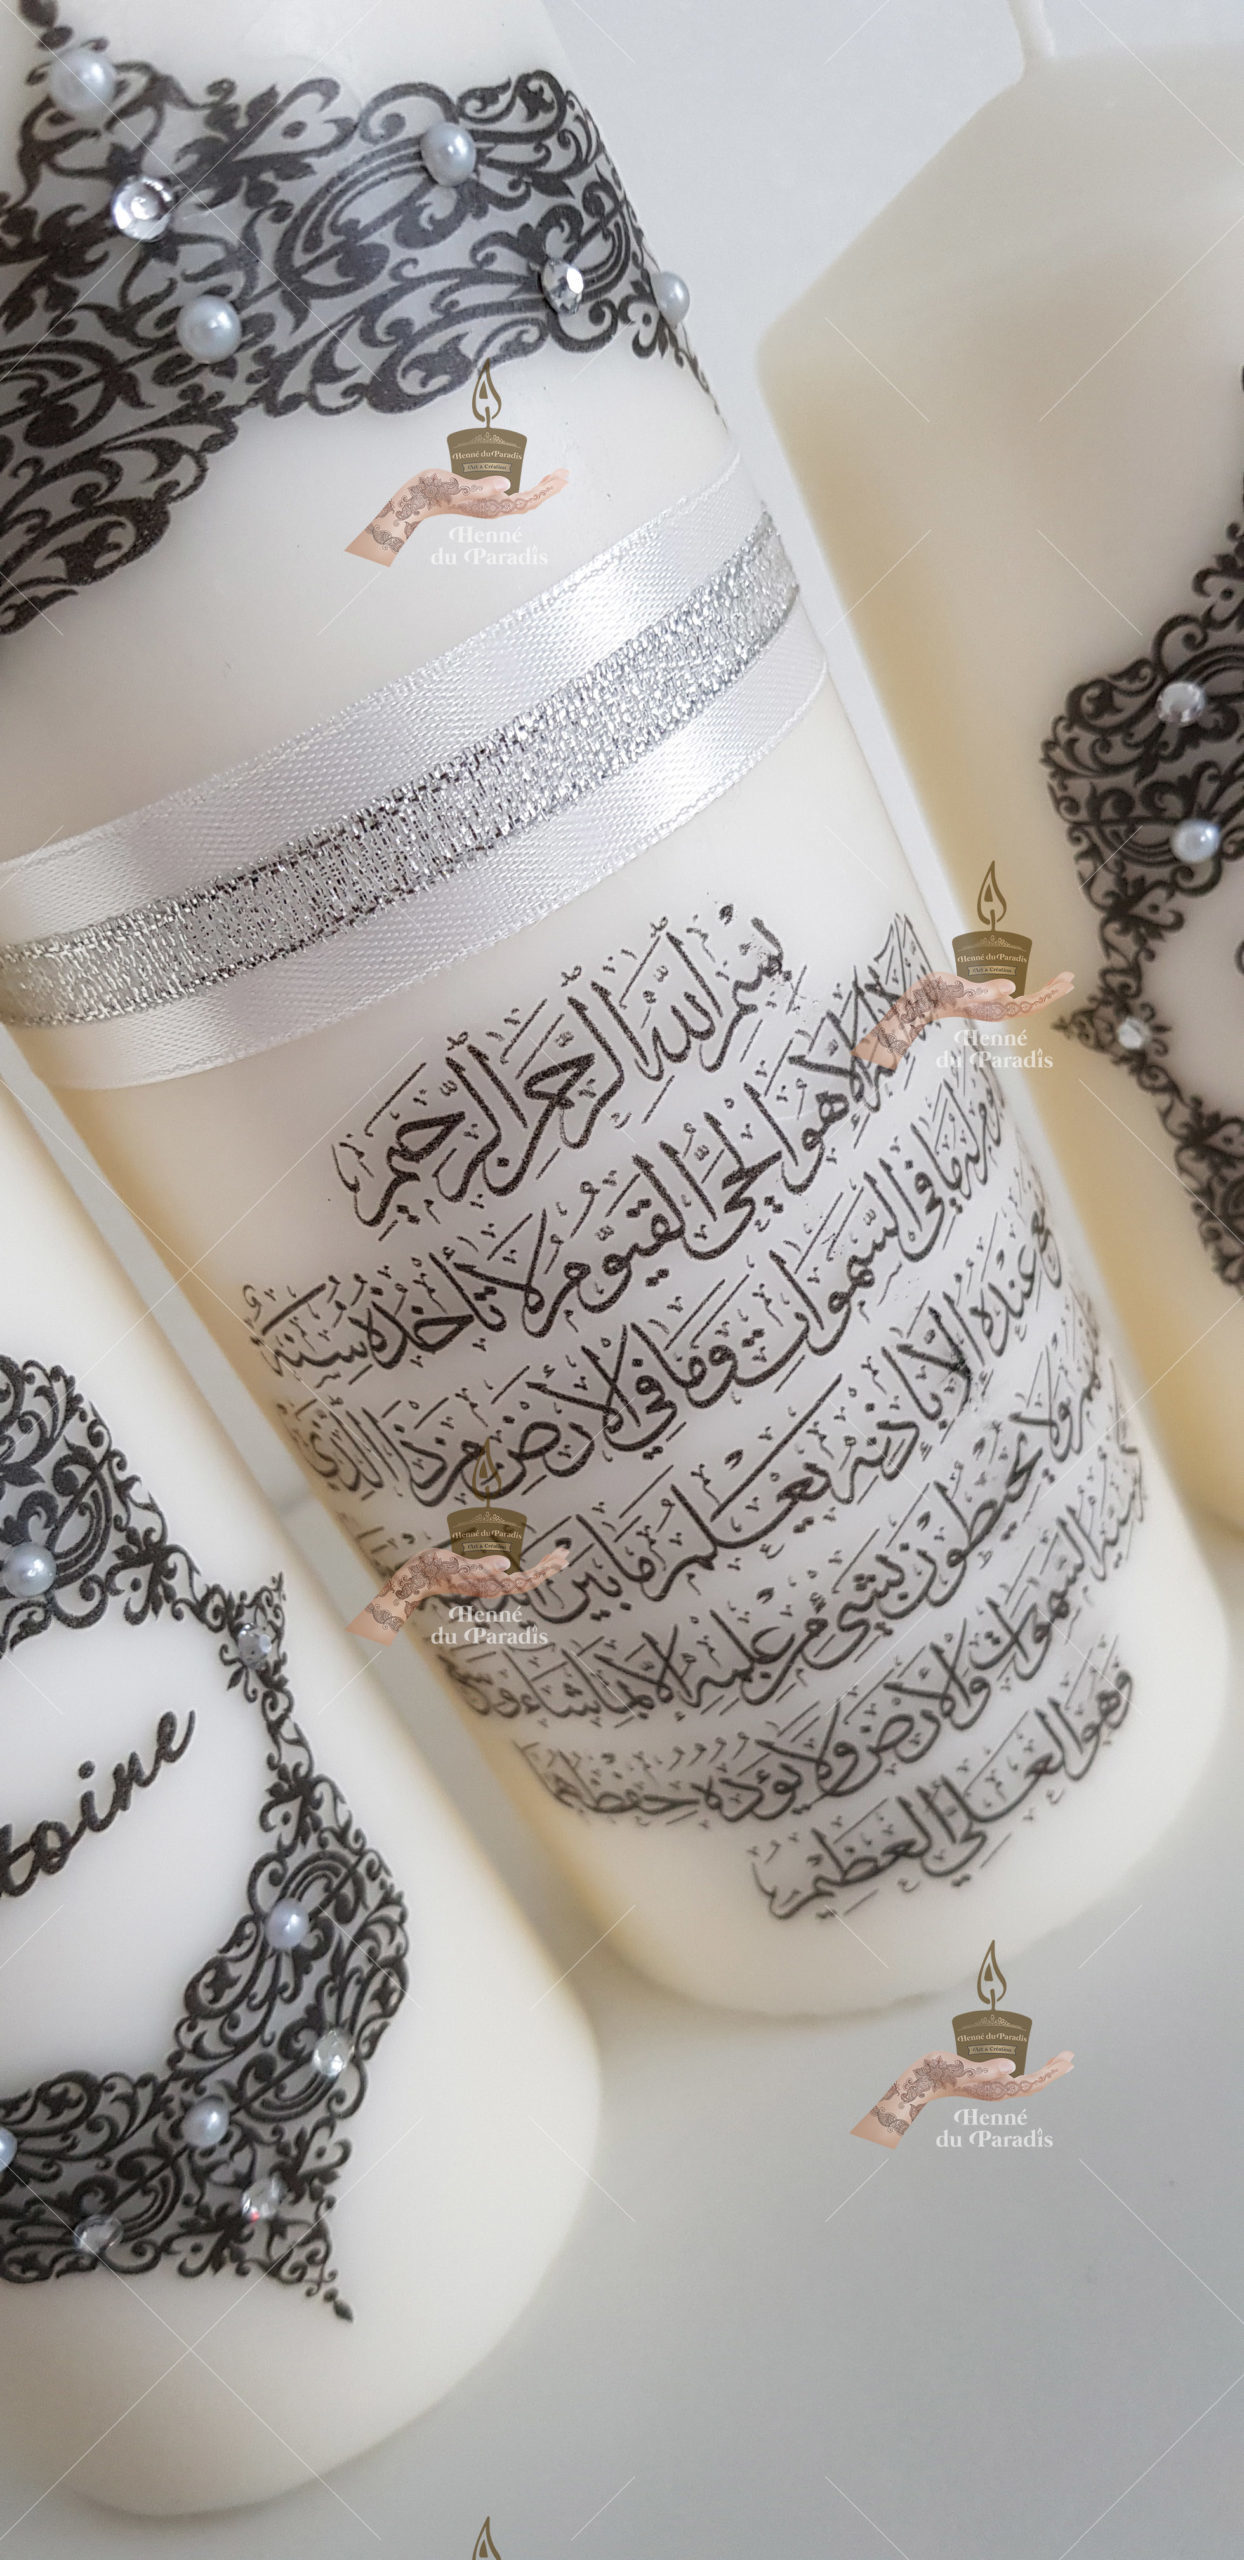 بسم الله الرحمن الرحيم
الله لا إله إلا هو الحي القيوم لا تأخذه سنة
له ما في السموات وما في الأرض من ذا الذي
عنده إلا بإذنه يعلم ما بين
ولا يحيطون بشيء من علمه إلا بما شاء وسع
السموات والأرض ولا يؤده حفظهما
وهو العلي العظيم
toine
Henné du Paradis
Art & Création
Henné
du Paradis
Henné du Paradis
Art & Création
Henné
du Paradis
Henné du Paradis
Art & Création
Henné
du Paradis
Henné du Paradis
Art & Création
Henné
du Paradis